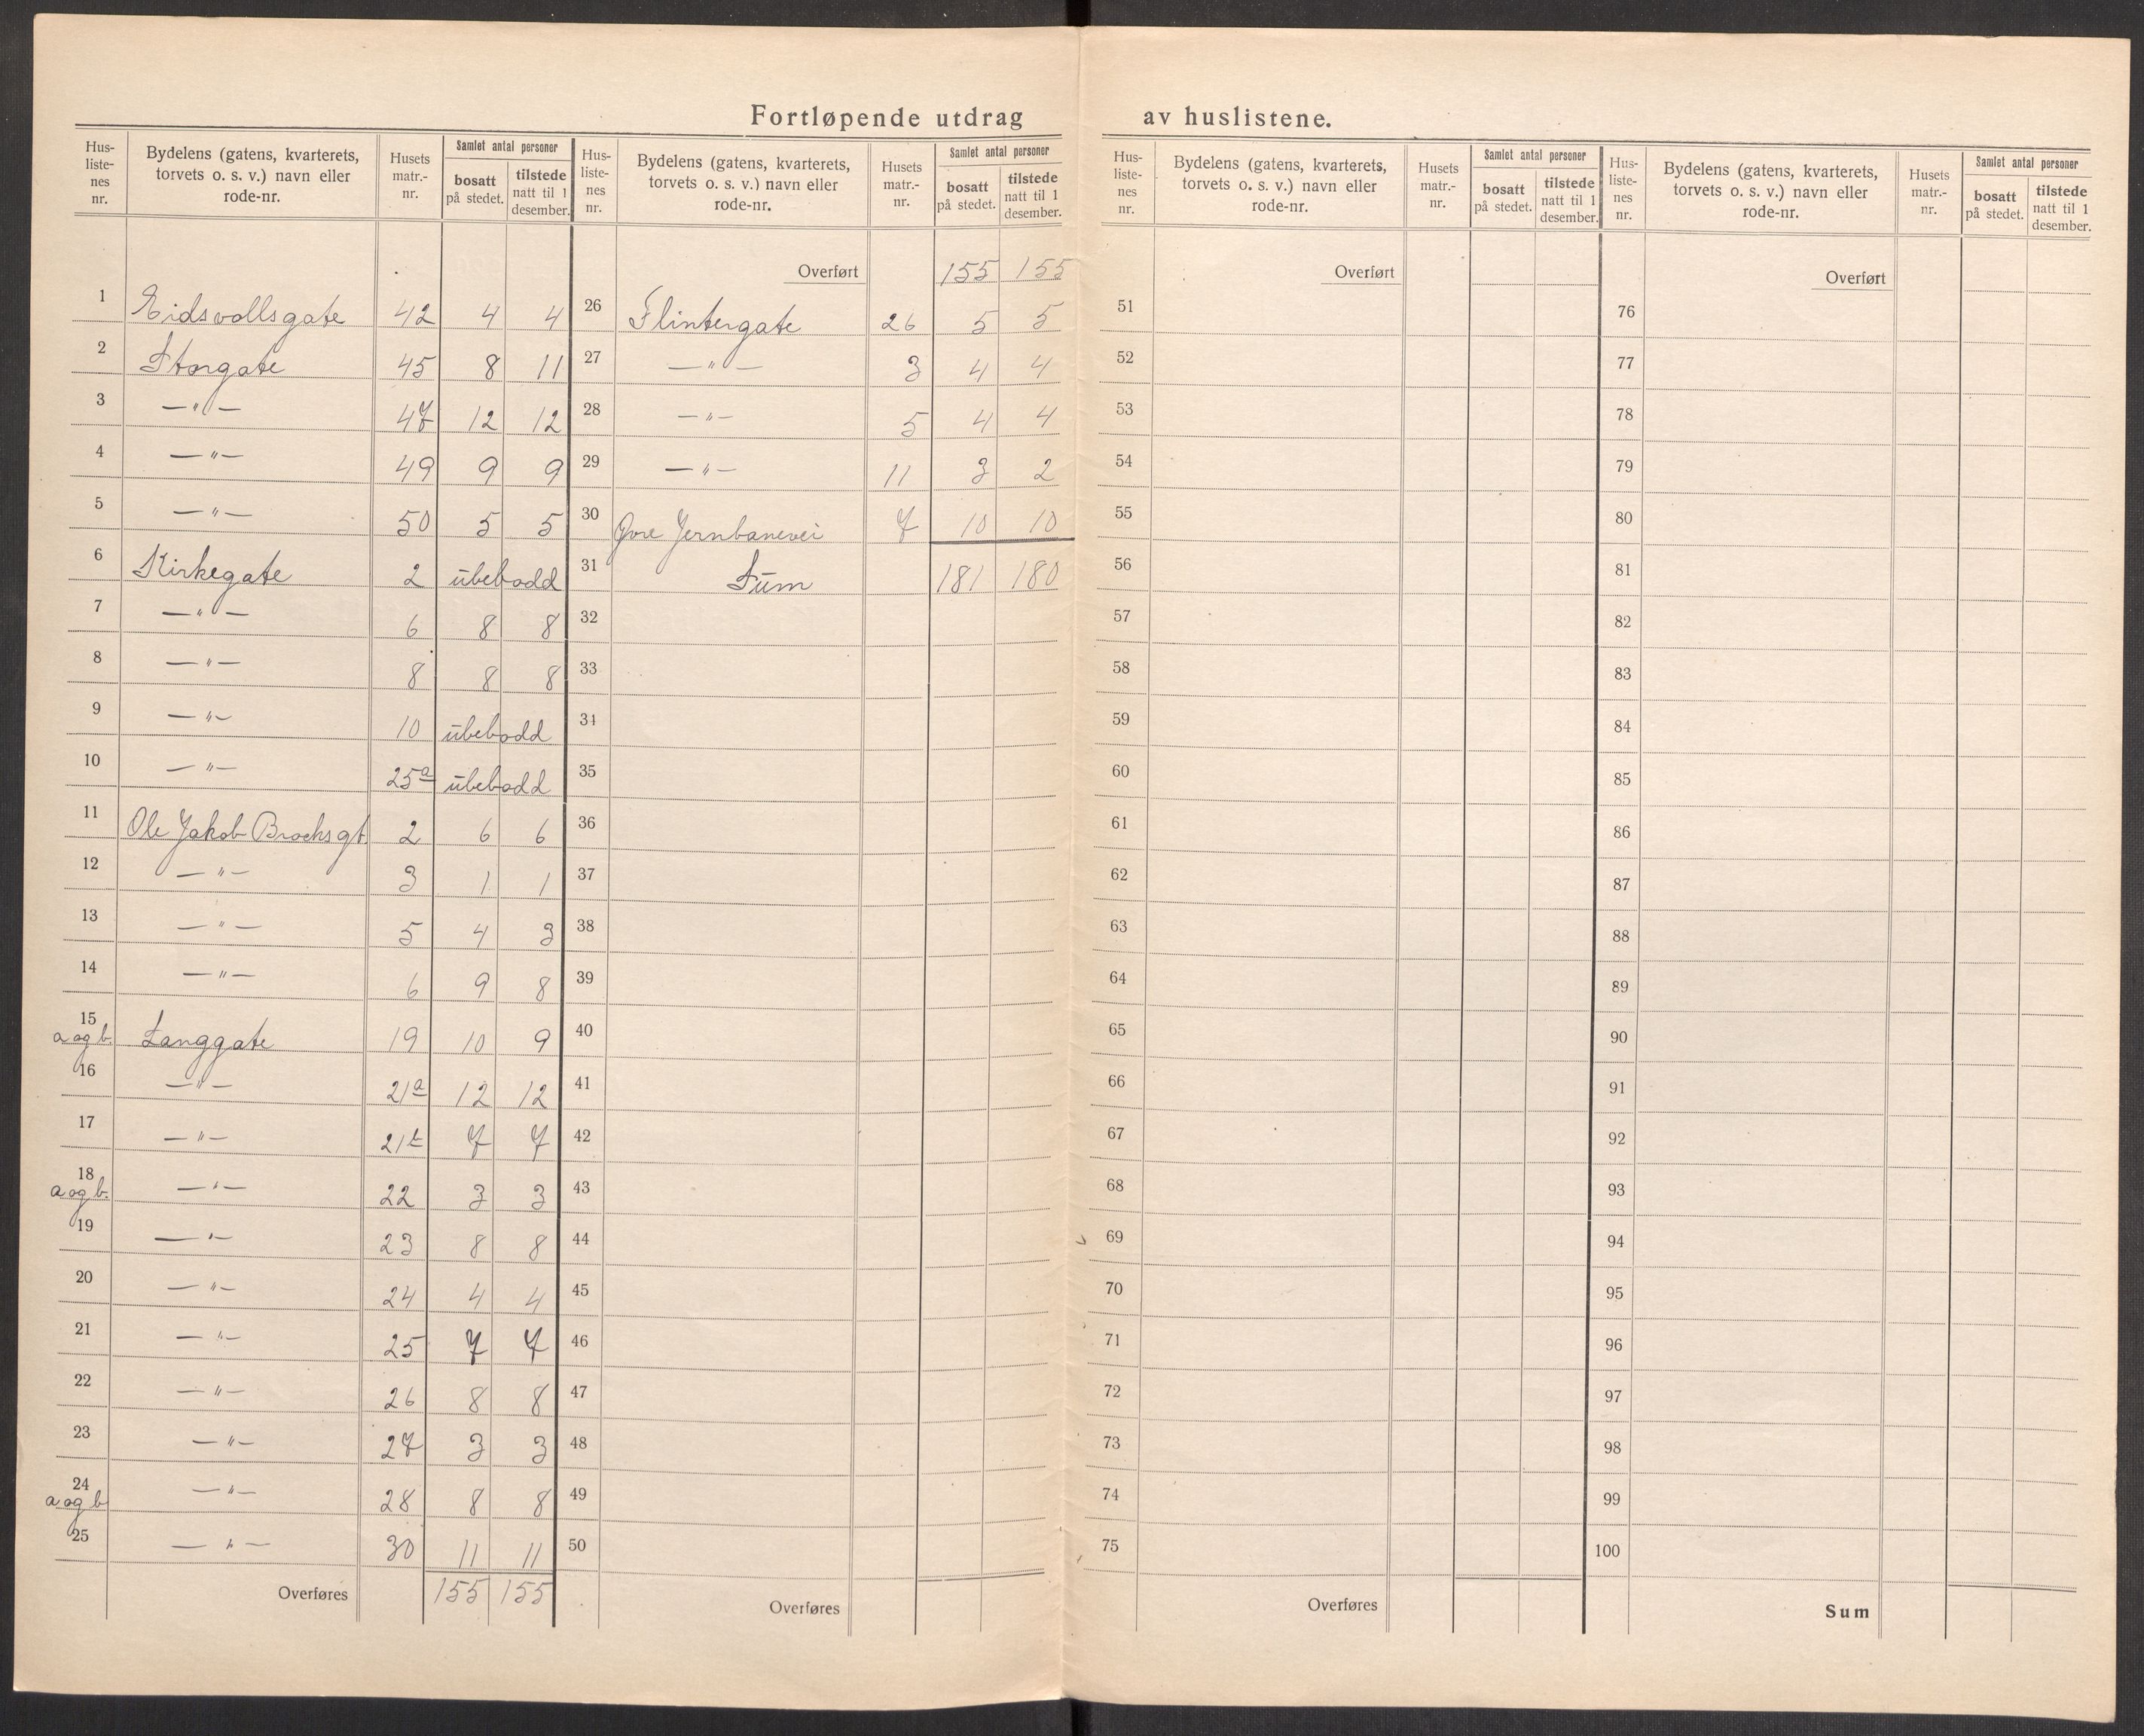 Fortløpende utdrag av huslistene.
Hus-liste-nes nr. | Bydelens (gatens, kvarterets, torvets o. s. v.) navn eller rode-nr. | Husets matr.-nr. | Samlet antal personer | bosatt på stedet. | tilstede natt til 1 desember.
1 Eidsvollsgate 42 4 4
2 Storgate 45 8 11
3 —"— 47 12 12
4 —"— 49 9 9
5 —"— 50 5 5
6 Kirkegate 2 ubebodd
7 —"— 6 8 8
8 —"— 8 8 8
9 —"— 10 ubebodd
10 —"— 25a ubebodd
11 Ole Jakob Brochsgt. 2 6 6
12 —"— 3 1 1
13 —"— 5 4 3
14 —"— 6 9 8
15 a og b. Langgate 19 10 9
16 —"— 21a 12 12
17 —"— 21b 7 7
18 a og b. —"— 22 3 3
19 —"— 23 8 8
20 —"— 24 4 4
21 —"— 25 7 7
22 —"— 26 8 8
23 —"— 27 3 3
24 a og b —"— 28 8 8
25 —"— 30 11 11
Overføres 155 155
Hus-liste-nes nr. | Bydelens (gatens, kvarterets, torvets o. s. v.) navn eller rode-nr. | Husets matr.-nr. | Samlet antal personer | bosatt på stedet. | tilstede natt til 1 desember.
Overført 155 155
26 Flintergate 26 5 5
27 —"— 3 4 4
28 —"— 5 4 4
29 —"— 11 3 2
30 Øvre Jernbanevei 7 10 10
31 Sum 181 180
32
33
34
35
36
37
38
39
40
41
42
43
44
45
46
47
48
49
50
Overføres
Hus-liste-nes nr. | Bydelens (gatens, kvarterets, torvets o. s. v.) navn eller rode-nr. | Husets matr.-nr. | Samlet antal personer | bosatt på stedet. | tilstede natt til 1 desember.
Overført
51
52
53
54
55
56
57
58
59
60
61
62
63
64
65
66
67
68
69
70
71
72
73
74
75
Overføres
Hus-liste-nes nr. | Bydelens (gatens, kvarterets, torvets o. s. v.) navn eller rode-nr. | Husets matr.-nr. | Samlet antal personer | bosatt på stedet. | tilstede natt til 1 desember.
Overført
76
77
78
79
80
81
82
83
84
85
86
87
88
89
90
91
92
93
94
95
96
97
98
99
100
Sum